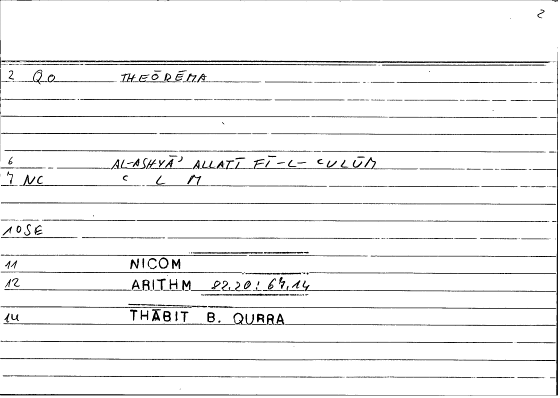 2
2 QO THEŌRĒMA
6 AL-ASHYĀʾ ALLATĪ FĪ-L-ʿULŪM
7 NC ʿ L M
10 SE
11 NICOM
12 ARITHM 82.20: 64,14
14 THĀBIT B. QURRA